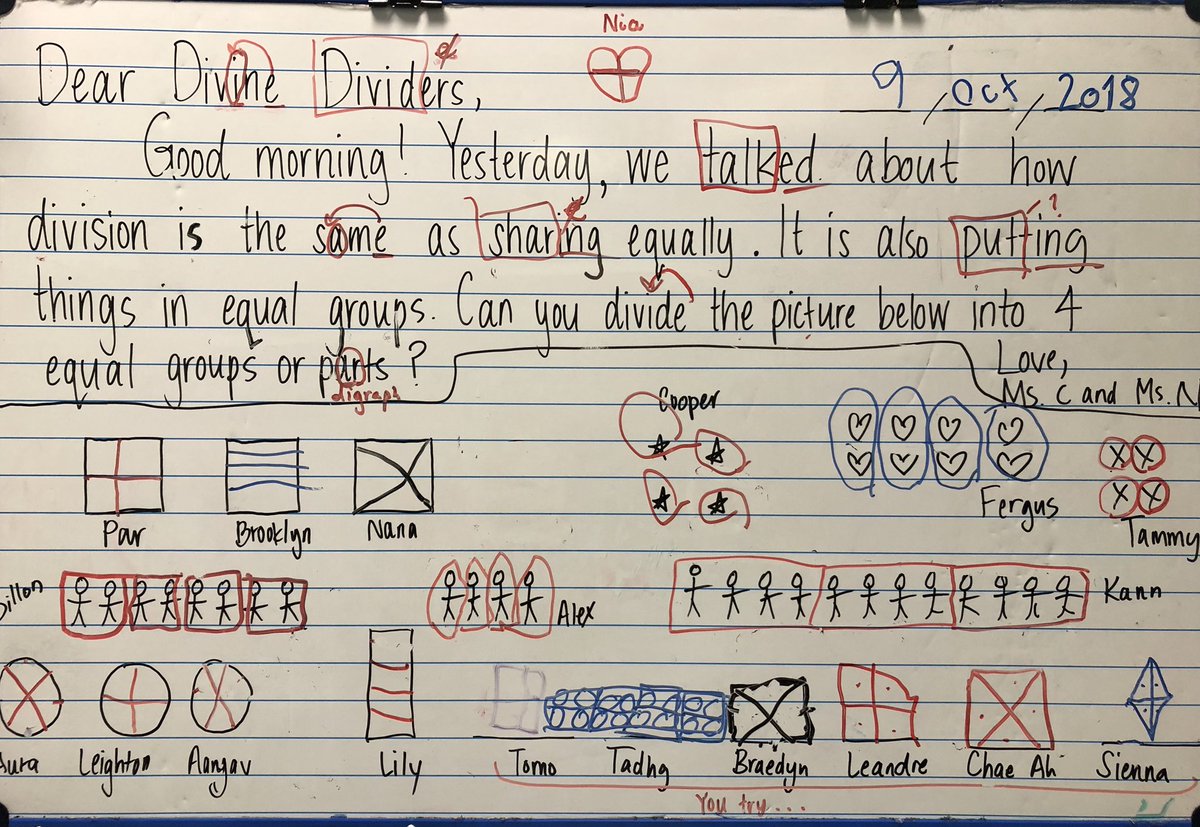 Nia
Dear Divine Dividers,
9 / Oct / 2018
Good morning! Yesterday, we talked about how
division is the same as sharing equally. It is also putting
things in equal groups. Can you divide the picture below into 4
equal groups or parts?
digraph
Love,
Ms. C and Ms. N
Cooper
Fergus
Tammy
Par
Brooklyn
Nana
Dillon
Alex
Kann
Leighton
Aangav
Lily
Tomo
Tadhg
Braedyn
Leandre
Chae Ah
Sienna
You try...